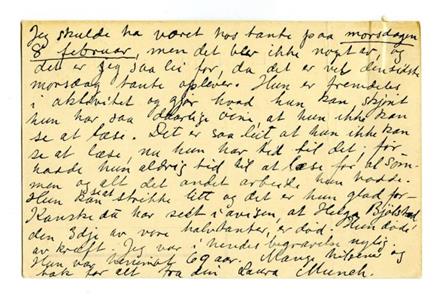 Jeg skulde ha været hos tante paa morsdagen
8 februar, men det blev ikke noget av og
det er jeg saa lei for, da det er vel den siste
morsdag tante oplever. Hun er fremdeles
i aktivitet og gjør hvad hun kan, skjønt
hun har saa daarlige øine, at hun ikke kan
se at læse. Det er saa leit at hun ikke kan
se at læse, nu hun har tid til det, før
hadde hun aldrig tid til at læse for
men og alt det andet arbeide hun hadde.
Hun kan strikke litt og det er hun glad for.
Kanske du har sett i avisen, at Helga
den 3dje av vore halvtanter, er død. Hun døde
av kræft. Jeg var i hendes begravelse nylig.
Hun var 69 aar. Mange hilsener og
tak for alt fra din Laura Munch.